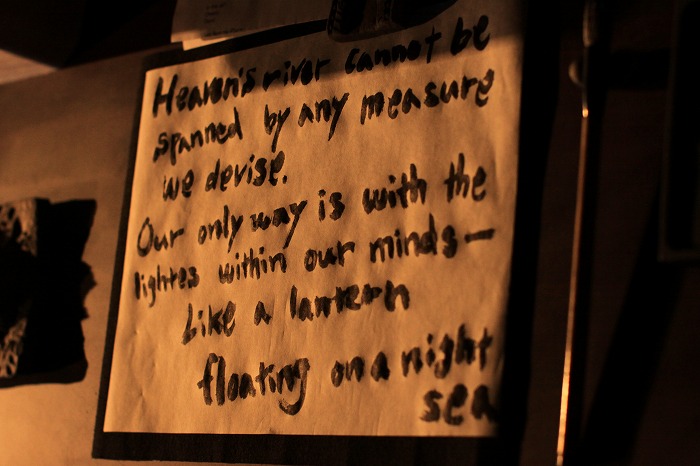 Heaven's river cannot be
spanned by any measure
we devise.
Our only way is with the
lightes within our minds—
Like a lantern
floating on a night
sea